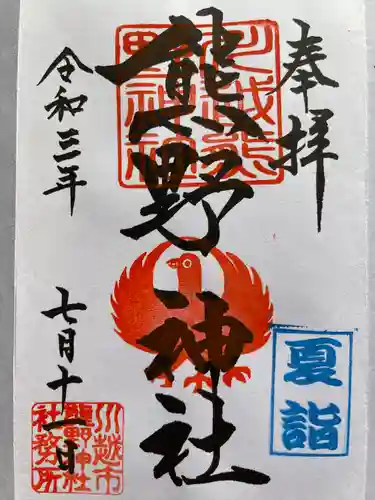 奉拝
川越熊
野神社
熊野神社
令和三年
七月十一日
夏詣
川越市
熊野神社
社務所